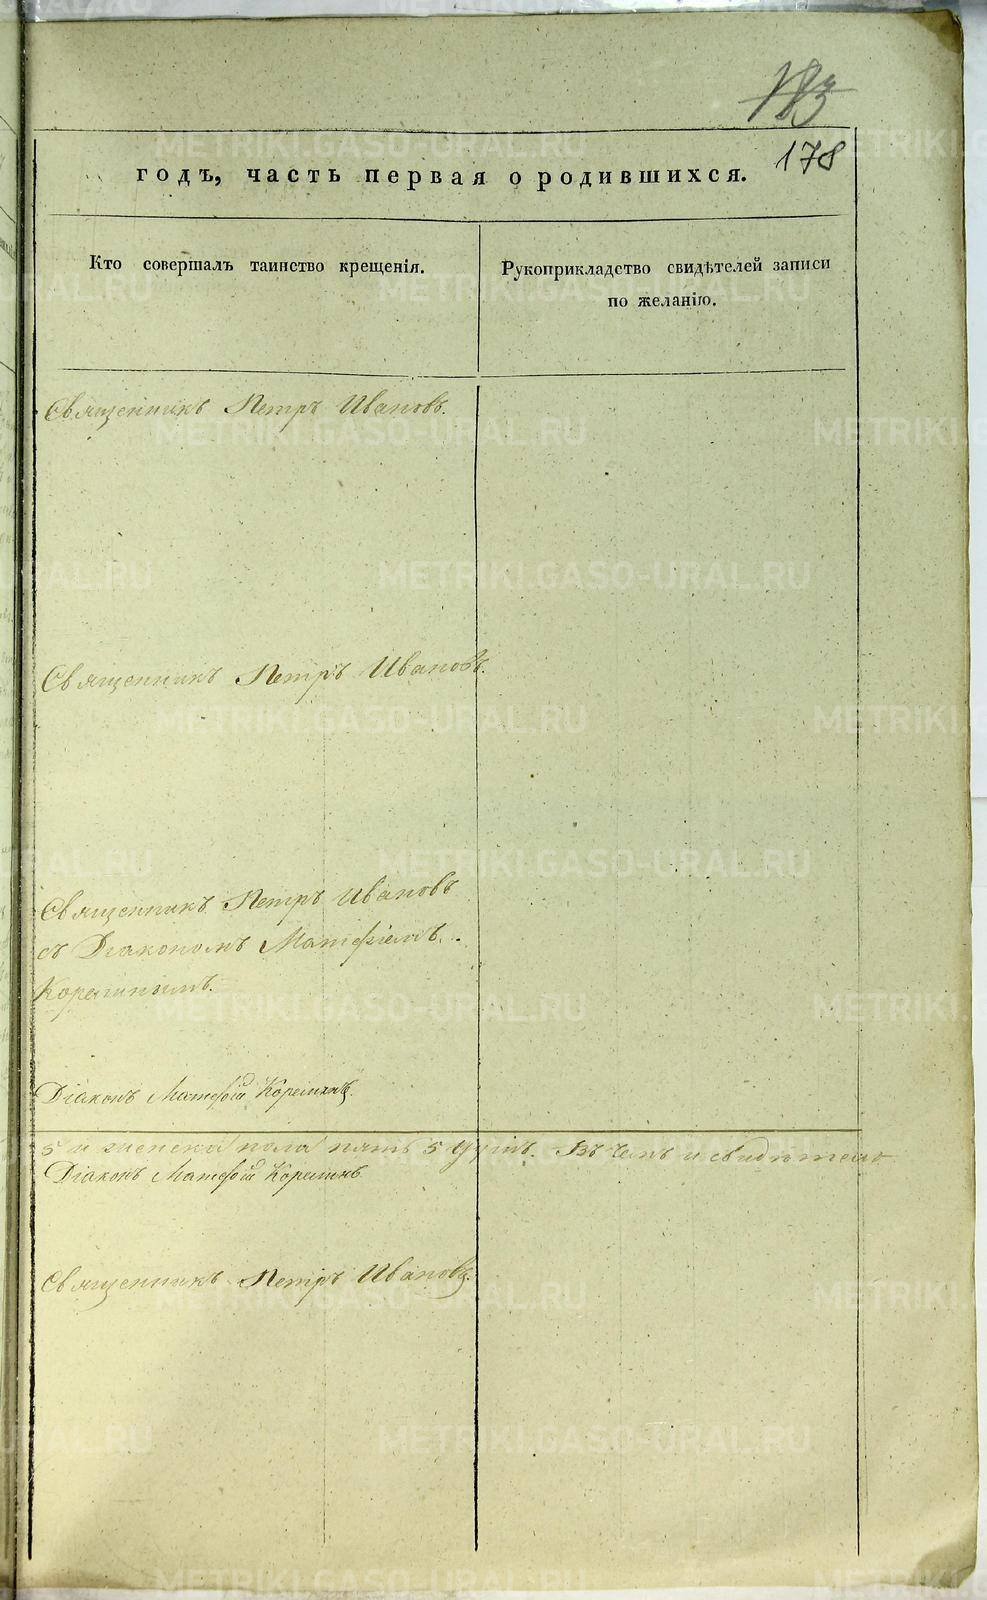 183
178
годъ, часть первая о родившихся.
Кто совершалъ таинство крещенія.
Рукоприкладство свидѣтелей записи
по желанію.
Священникъ Петръ Ивановъ.
Священникъ Петръ Ивановъ.
Священникъ Петръ Ивановъ
съ Діакономъ Матфіемъ
Корелинымъ.
Діаконъ Матфій Корелинъ.
5 и женска пола пять 5 душъ. Въ чемъ и свидѣтельс
Діаконъ Матфій Корелинъ
Священникъ Петръ Ивановъ.
METRIKI.GASO-URAL.RU